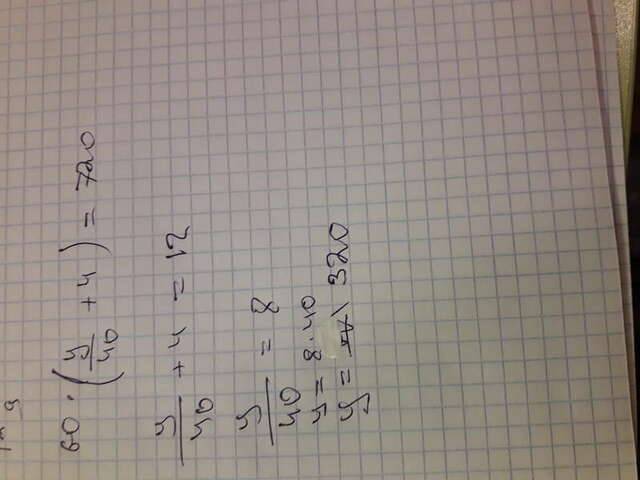 60 · (y/40 + 4) = 720
y/40 + 4 = 12
y/40 = 8
y = 8 · 40
y = 320